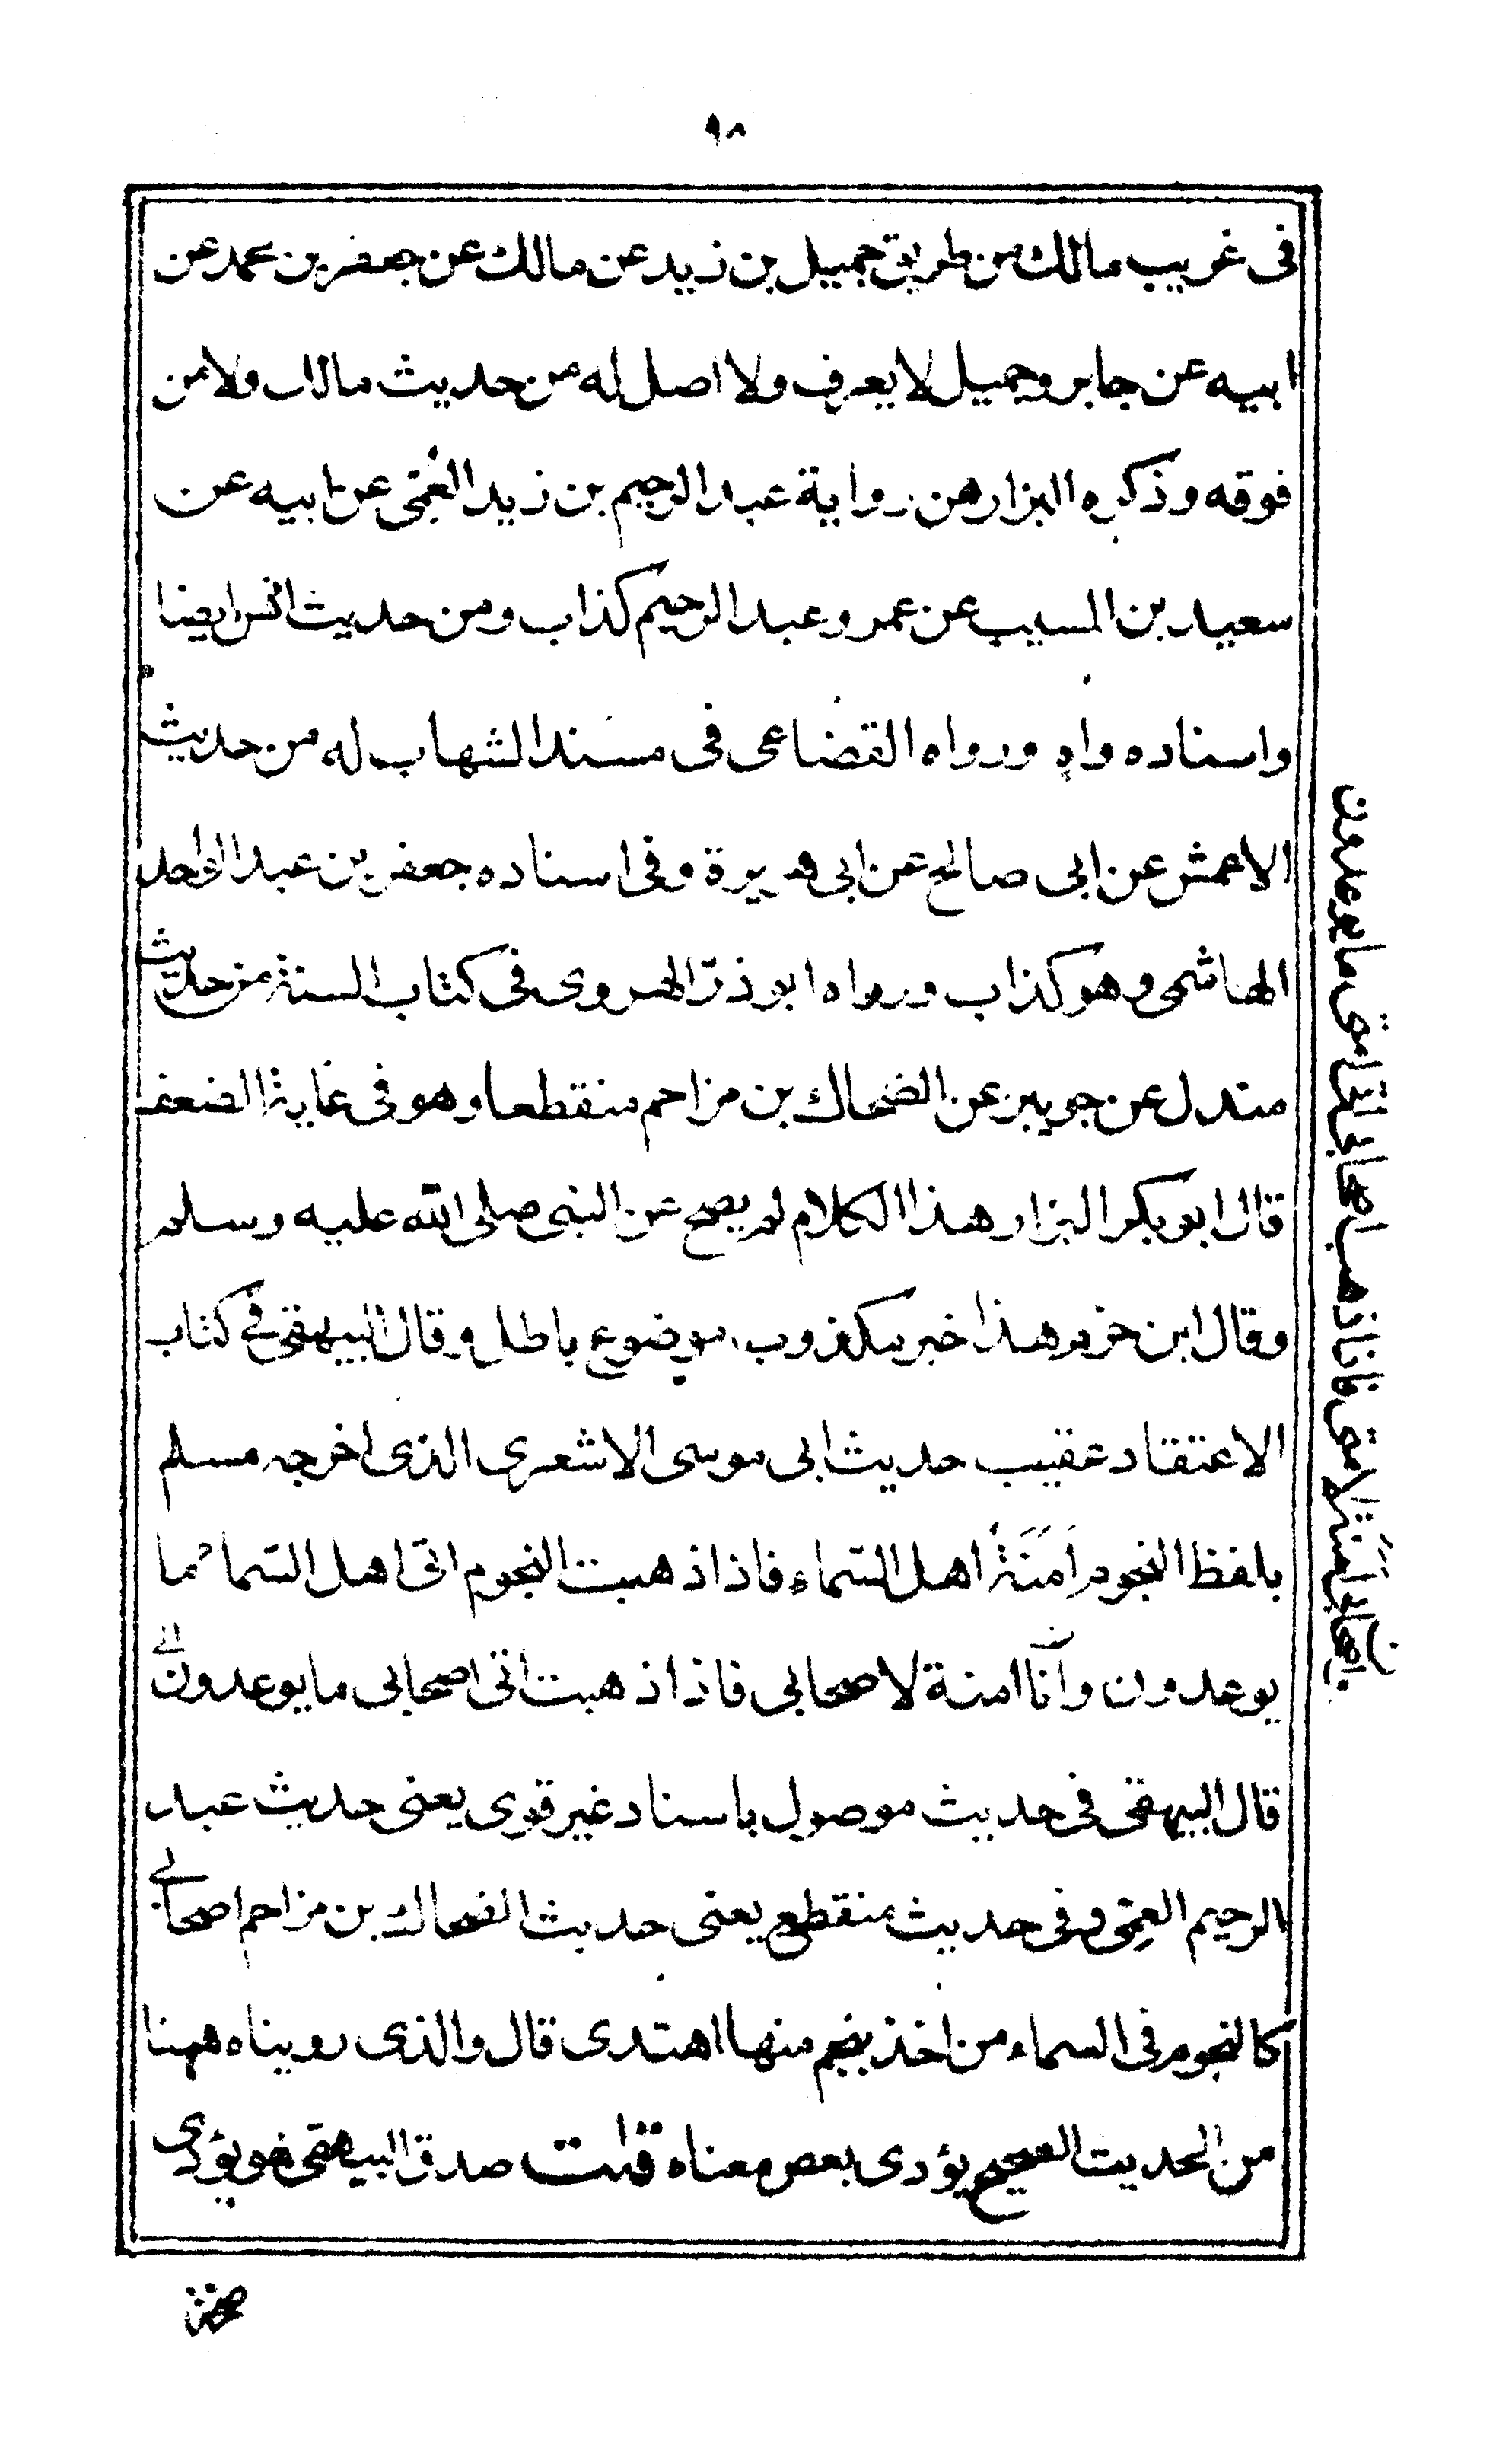 ٩٨
فى غريب مالك من طريق جميل بن زيد عن مالك عن جعفر بن محمد عن
ابيه عن جابر وجميل لا يعرف ولا اصل له من حديث مالك ولا من
فوقه وذكره البزار من رواية عبد الرحيم بن زيد العُمّى عن ابيه عن
سعيد بن المسيب عن عمر وعبد الرحيم كذاب ومن حديث انس ايضا
واسناده واهٍ ورواه القضاعى فى مسند الشهاب له من حديث
الاعمش عن ابى صالح عن ابى هريرة وفى اسناده جعفر بن عبد الواحد
الهاشمى وهو كذاب ورواه ابو ذرّ الهروى فى كتاب السنة من حديث
مندل عن جويبر عن الضحاك بن مزاحم منقطعا وهو فى غاية الضعف
قال ابو بكر البزار هذا الكلام لم يصح عن النبى صلى الله عليه وسلم
وقال ابن حزم هذا خبر مكذوب موضوع باطل وقال البيهقى فى كتاب
الاعتقاد عقيب حديث ابى موسى الاشعرى الذى اخرجه مسلم
بلفظ النجوم اَمَنَةُ اهل السّماء فاذا ذهبت النجوم اتى اهل السّماء ما
يوعدون وأنا امنة لاصحابى فاذا ذهبت اتى اصحابى ما يوعدون
قال البيهقى فى حديث موصول باسناد غير قوى يعنى حديث عبد
الرحيم العمِّى وفى حديث منقطع يعنى حديث الضحاك بن مزاحم اصحابى
كالنجوم فى السماء من اخذ بنجم منها اهتدى قال والذى رويناه ههنا
من الحديث الصحيح يؤدى بعض معناه قلت صدق البيهقى هو يؤدى
اصحابى اَمَنَة لامتى فاذا ذهب اصحابى اتى امتى ما يوعدون